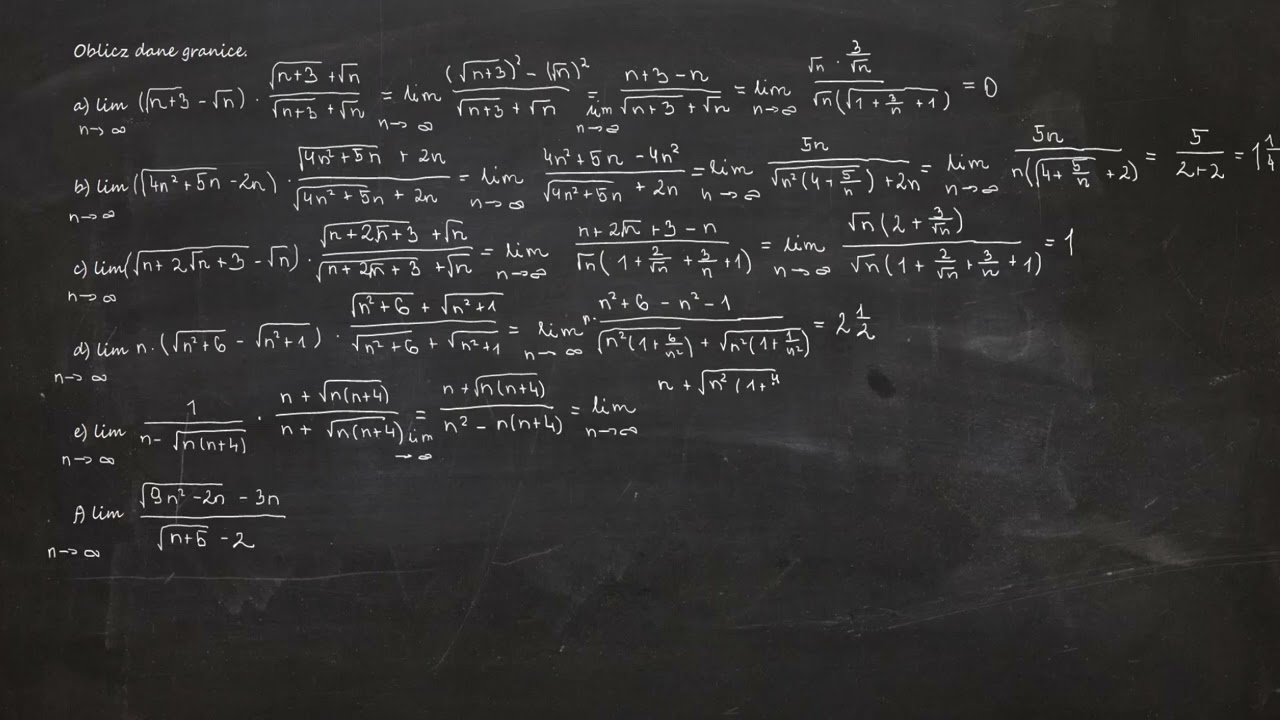 Oblicz dane granice.
a) lim n→∞ (√(n+3) - √n) · (√(n+3) + √n)/(√(n+3) + √n) = lim n→∞ ((√(n+3))² - (√n)²)/(√(n+3) + √n) = lim n→∞ (n+3-n)/(√(n+3) + √n) = lim n→∞ (√n · 3/√n)/(√n(√(1+3/n) + 1)) = 0
b) lim n→∞ (√(4n²+5n) - 2n) · (√(4n²+5n) + 2n)/(√(4n²+5n) + 2n) = lim n→∞ (4n²+5n-4n²)/(√(4n²+5n) + 2n) = lim n→∞ 5n/(√(n²(4+5/n)) + 2n) = lim n→∞ 5n/(n(√(4+5/n) + 2)) = 5/(2+2) = 1 1/4
c) lim n→∞ (√(n+2√n+3) - √n) · (√(n+2√n+3) + √n)/(√(n+2√n+3) + √n) = lim n→∞ (n+2√n+3-n)/(√n(1+2/√n+3/n+1)) = lim n→∞ (√n(2+3/√n))/(√n(1+2/√n+3/n+1)) = 1
d) lim n→∞ n·(√(n²+6) - √(n²+1)) · (√(n²+6) + √(n²+1))/(√(n²+6) + √(n²+1)) = lim n→∞ n· (n²+6-n²-1)/(√(n²(1+6/n²)) + √(n²(1+1/n²))) = 2 1/2
e) lim n→∞ 1/(n-√(n(n+4))) · (n+√(n(n+4)))/(n+√(n(n+4))) = lim →∞ (n+√(n(n+4)))/(n²-n(n+4)) = lim n→∞ n+√(n²(1+4
f) lim n→∞ (√(9n²-2n) - 3n)/(√(n+5) - 2)